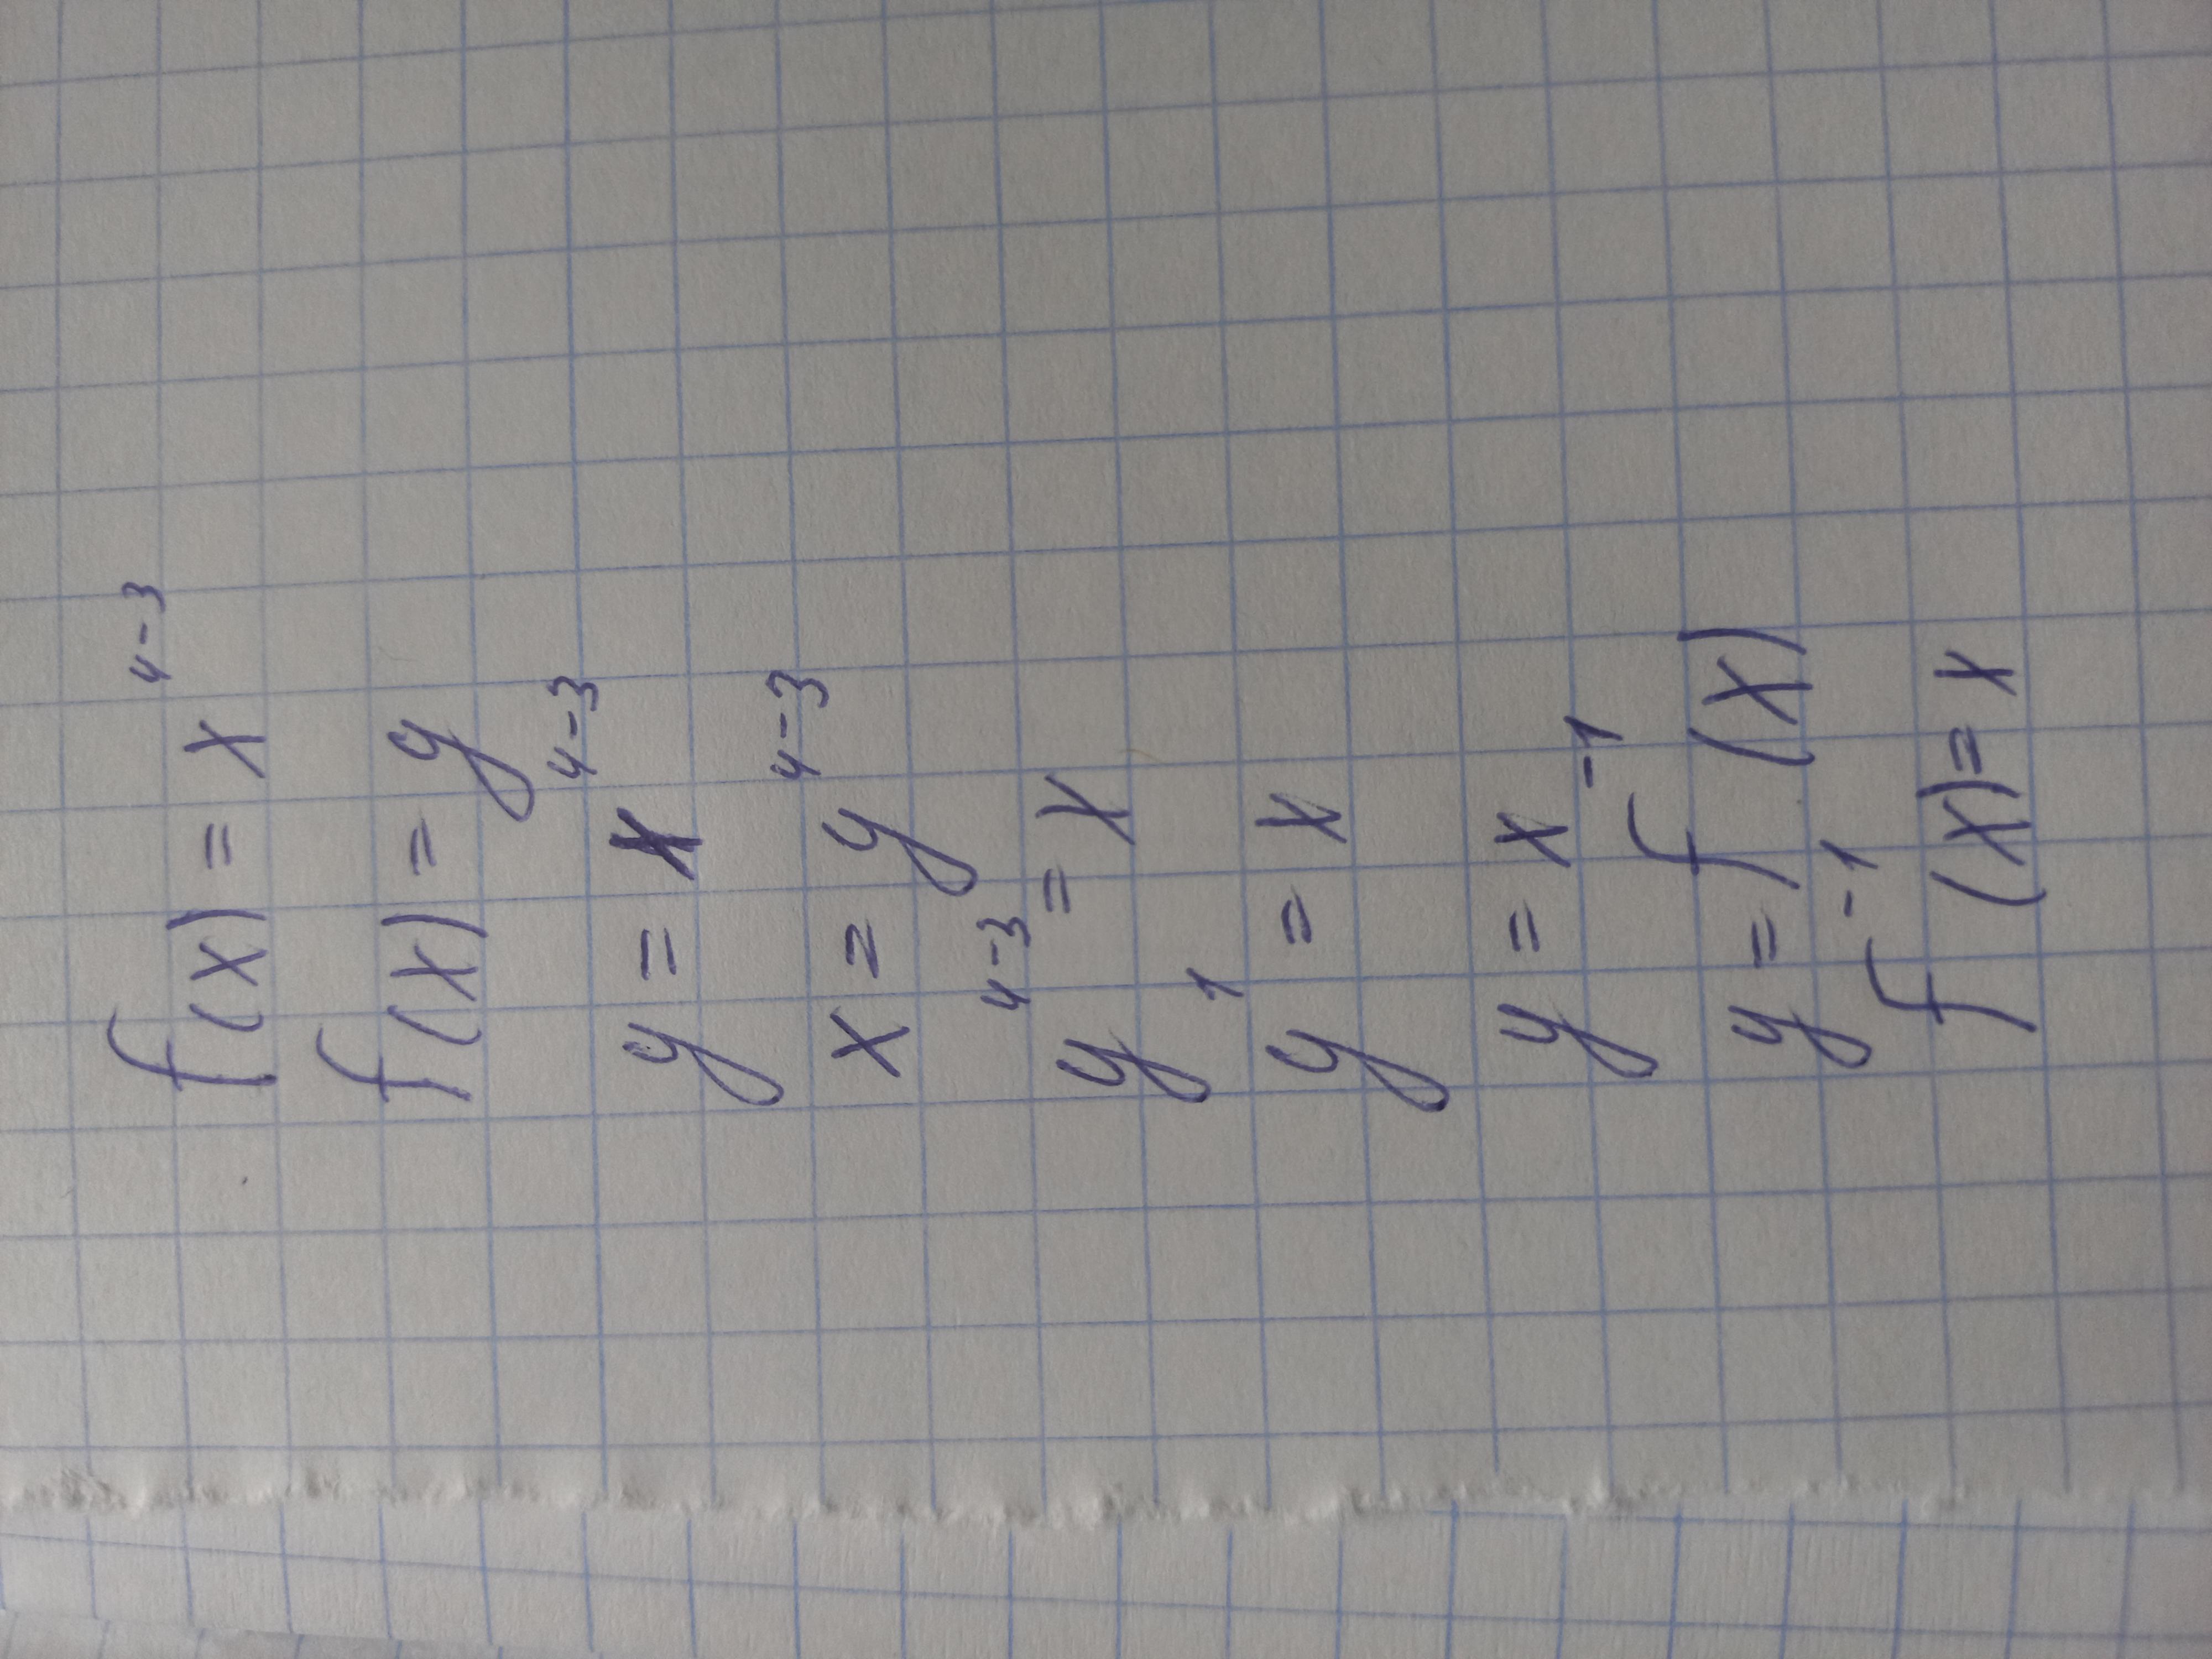 f(x) = x⁴⁻³
f(x) = y
y = x⁴⁻³
x = y⁴⁻³
y⁴⁻³ = x
y¹ = x
y = x
y = f⁻¹(x)
f⁻¹(x) = x